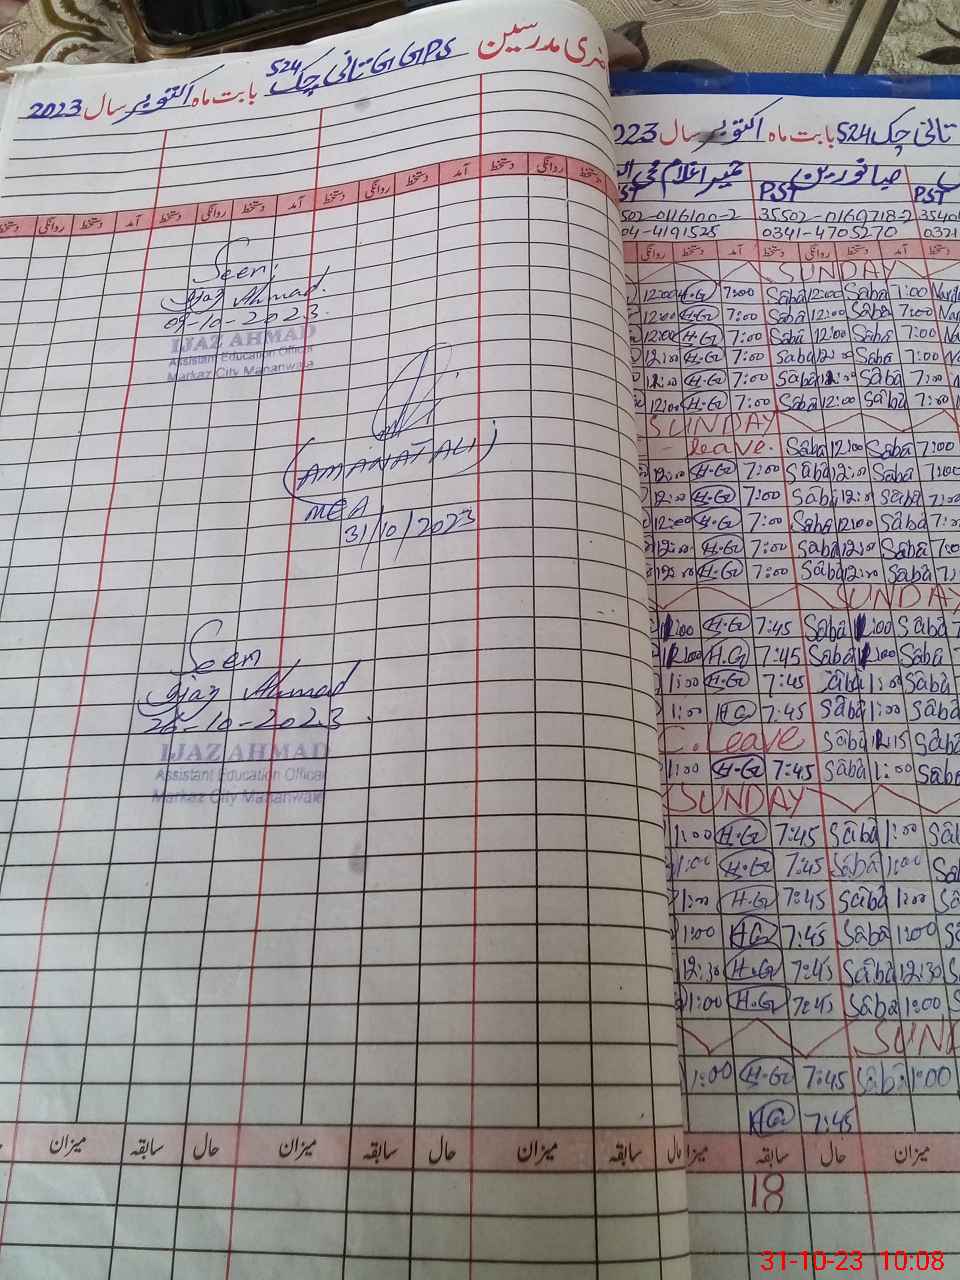 حاضری مدرسین GGPS ثانی چک 524 بابت ماہ اکتوبر سال 2023
دستخط روانگی دستخط آمد دستخط روانگی دستخط آمد دستخط روانگی دستخط آمد دستخط روانگی دستخط
Seen
Ijaz Ahmad.
09-10-2023
IJAZ AHMAD
Assistant Education Officer
Markaz City Mananwala
(AMANAT ALI)
MEA
31/10/2023
Seen
Ijaz Ahmad
26-10-2023.
IJAZ AHMAD
Assistant Education Officer
Markaz City Mananwala
حال سابقہ میزان حال سابقہ میزان حال سابقہ میزان
ثانی چک 524 بابت ماہ اکتوبر سال 2023
PST PST
502-0116100-2 35502-0169718-2 3540
04-4191525 0341-4705270 0321
دستخط آمد دستخط روانگی دستخط آمد دستخط روانگی
SUNDAY
12:00 H-G 7:00 Saba 12:00 Saba 7:00
12:00 H-G 7:00 Saba 12:00 Saba 7:00
12:00 H-G 7:00 Saba 12:00 Saba 7:00
12:00 H-G 7:00 Saba 12:00 Saba 7:00
12:00 H-G 7:00 Saba 12:00 Saba 7:00
12:00 H-G 7:00 Saba 12:00 Saba 7:00
SUNDAY
leave. Saba 12:00 Saba 7:00
12:00 H-G 7:00 Saba 12:00 Saba 7:00
12:00 H-G 7:00 Saba 12:00 Saba 7:00
12:00 H-G 7:00 Saba 12:00 Saba 7:
12:00 H-G 7:00 Saba 12:00 Saba 7:
12:00 H-G 7:00 Saba 12:00 Saba 7:
SUNDAY
1:00 H-G 7:45 Saba 1:00 Saba
1:00 H.G 7:45 Saba 1:00 Saba
1:00 H-G 7:45 Saba 1:00 Saba
1:00 HG 7:45 Saba 1:00 Saba
C. Leave Saba 12:15 Saba
1:00 H-G 7:45 Saba 1:00 Saba
SUNDAY
1:00 H-G 7:45 Saba 1:00 Sab
1:00 H-G 7:45 Saba 1:00 Sab
1:00 H-G 7:45 Saba 1:00 Sa
1:00 HG 7:45 Saba 1:00 Sa
12:30 H-G 7:45 Saba 12:30 S
1:00 H-G 7:45 Saba 1:00 S
SUN
1:00 H-G 7:45 Saba 1:00
HG 7:45
میزان حال سابقہ میزان
18
31-10-23 10:08